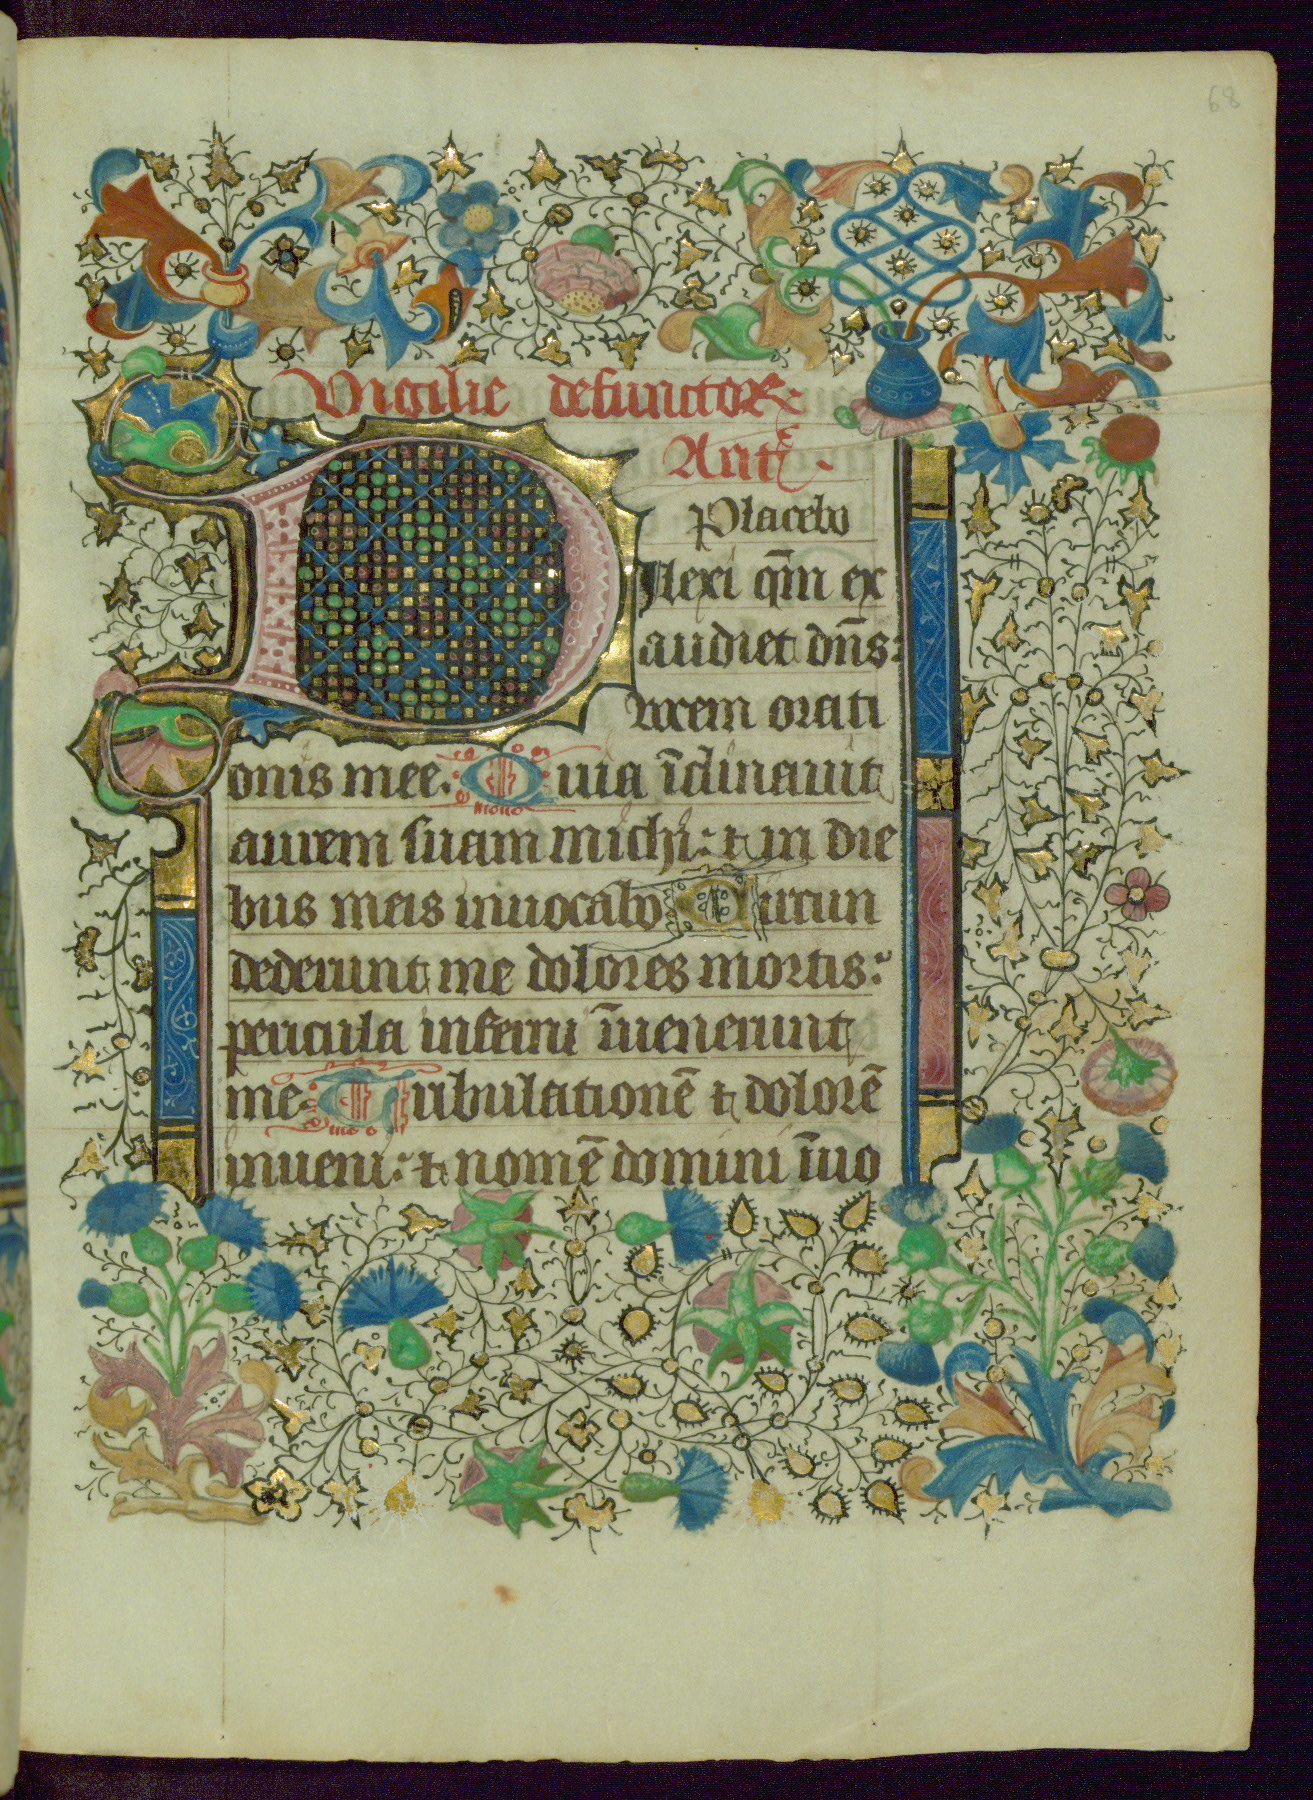 68
Vigilie defunctoꝝ
Antꝭ.
Placebo
Dilexi qm̄ ex
audiet dn̄s:
vocem orati
onis mee. Quia īclinauit
aurem suam michi: ⁊ in die
bus meis inuocabo Circun
dederunt me dolores mortis:
pericula inferni īuenerunt
me. Tribulationē ⁊ dolorē
inueni: ⁊ nomē domini īuo